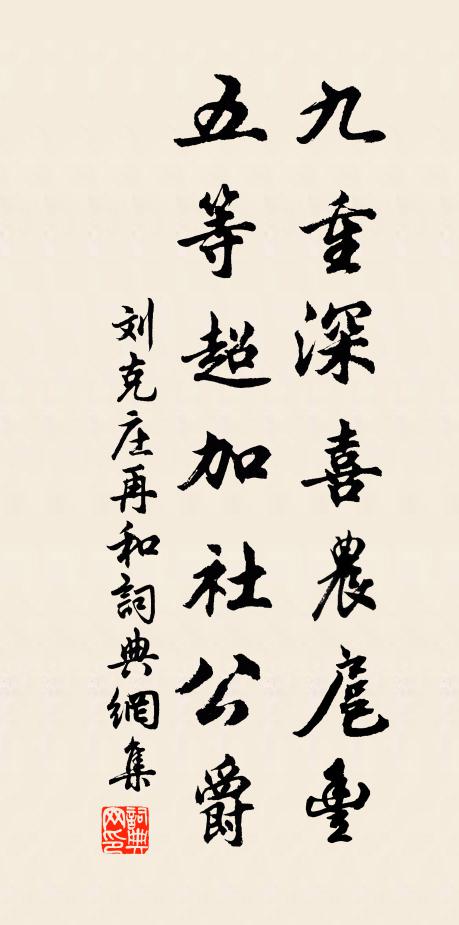 九重深喜農扈豐
五等超加社公爵
刘克庄再和詞典網集
詞典网印